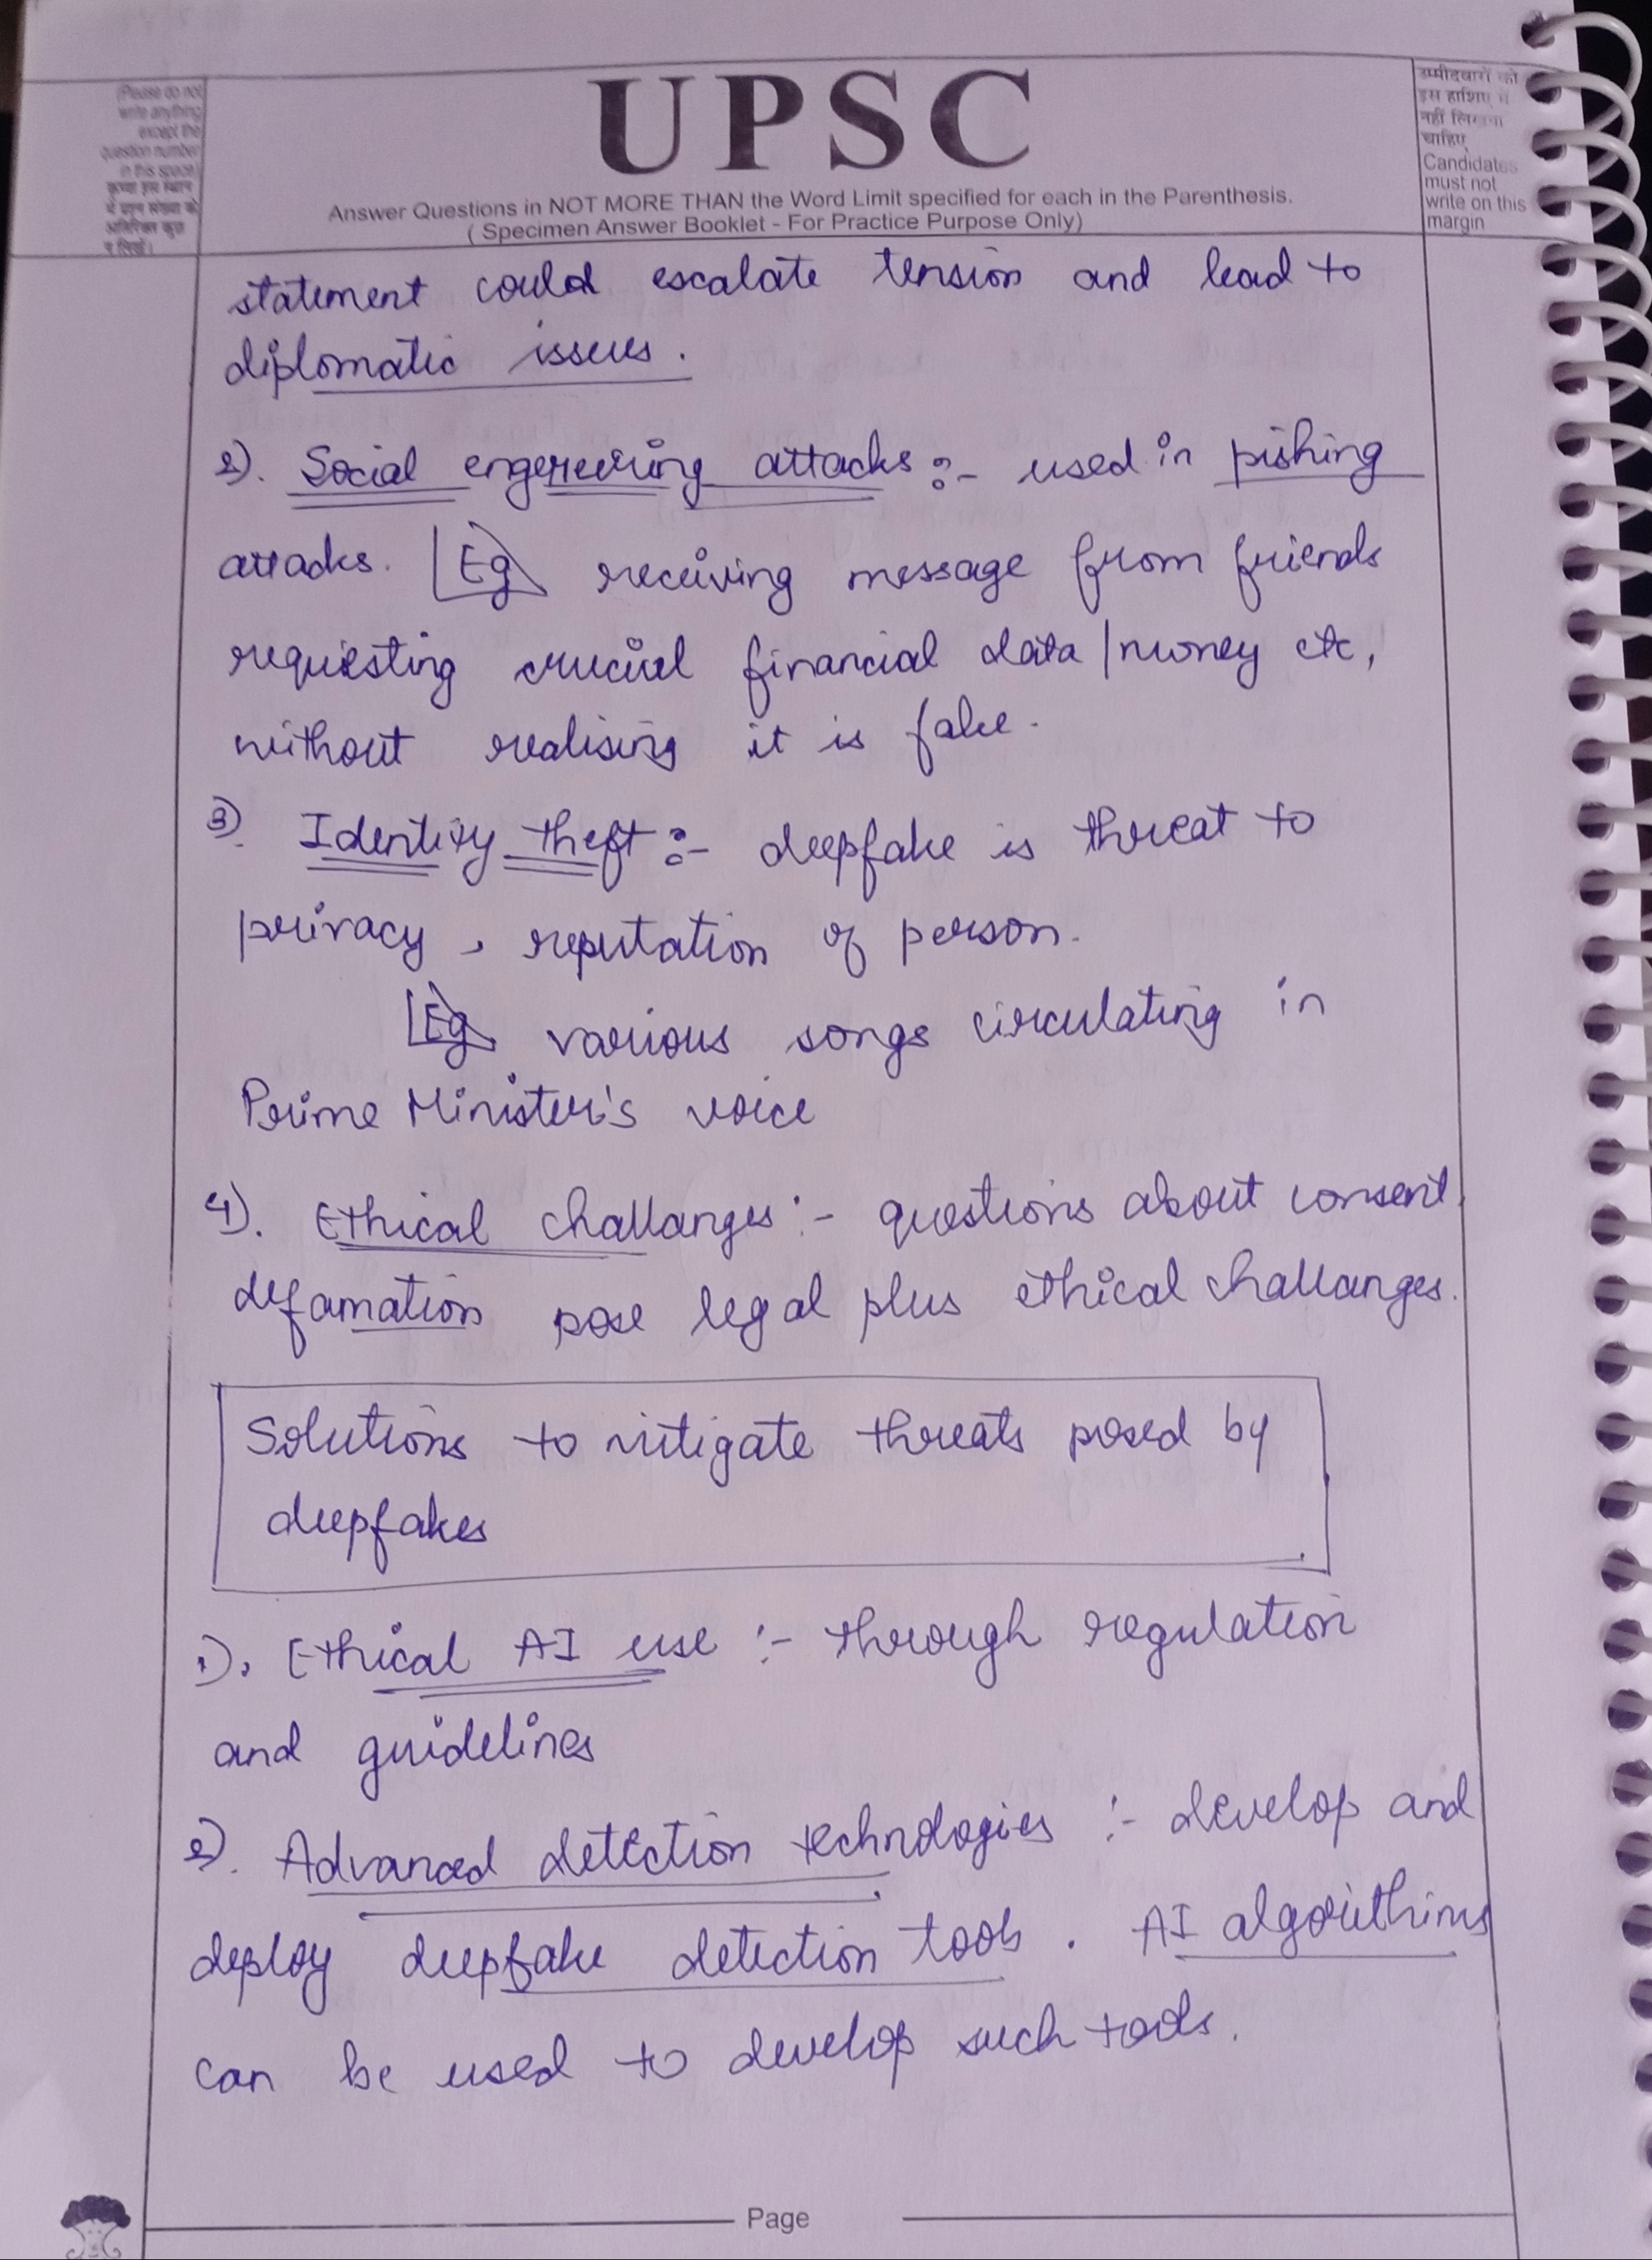 (Please do not
write anything
except the
question number
in this space)
कृपया इस स्थान
में प्रश्न संख्या के
अतिरिक्त कुछ
न लिखें।
UPSC
Answer Questions in NOT MORE THAN the Word Limit specified for each in the Parenthesis.
( Specimen Answer Booklet - For Practice Purpose Only)
उम्मीदवारों को
इस हाशिए में
नहीं लिखना
चाहिए
Candidates
must not
write on this
margin
statement could escalate tension and lead to
diplomatic issues.
2). Social engereering attacks :- used in pishing
attacks. Eg receiving message from friends
requesting crucial financial data / money etc,
without realising it is fake.
3) Identity theft :- deepfake is threat to
privacy, reputation of person.
Eg various songs circulating in
Prime Minister's voice
4). Ethical challanges :- questions about consent,
defamation pose legal plus ethical challanges.
Solutions to mitigate threats posed by
deepfakes
1). Ethical AI use :- through regulation
and guidelines
2). Advanced detection technologies :- develop and
deploy deepfake detection tools. AI algorithims
can be used to develop such tools.
Page